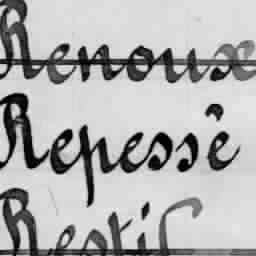 Renoux
Repessê
Restif